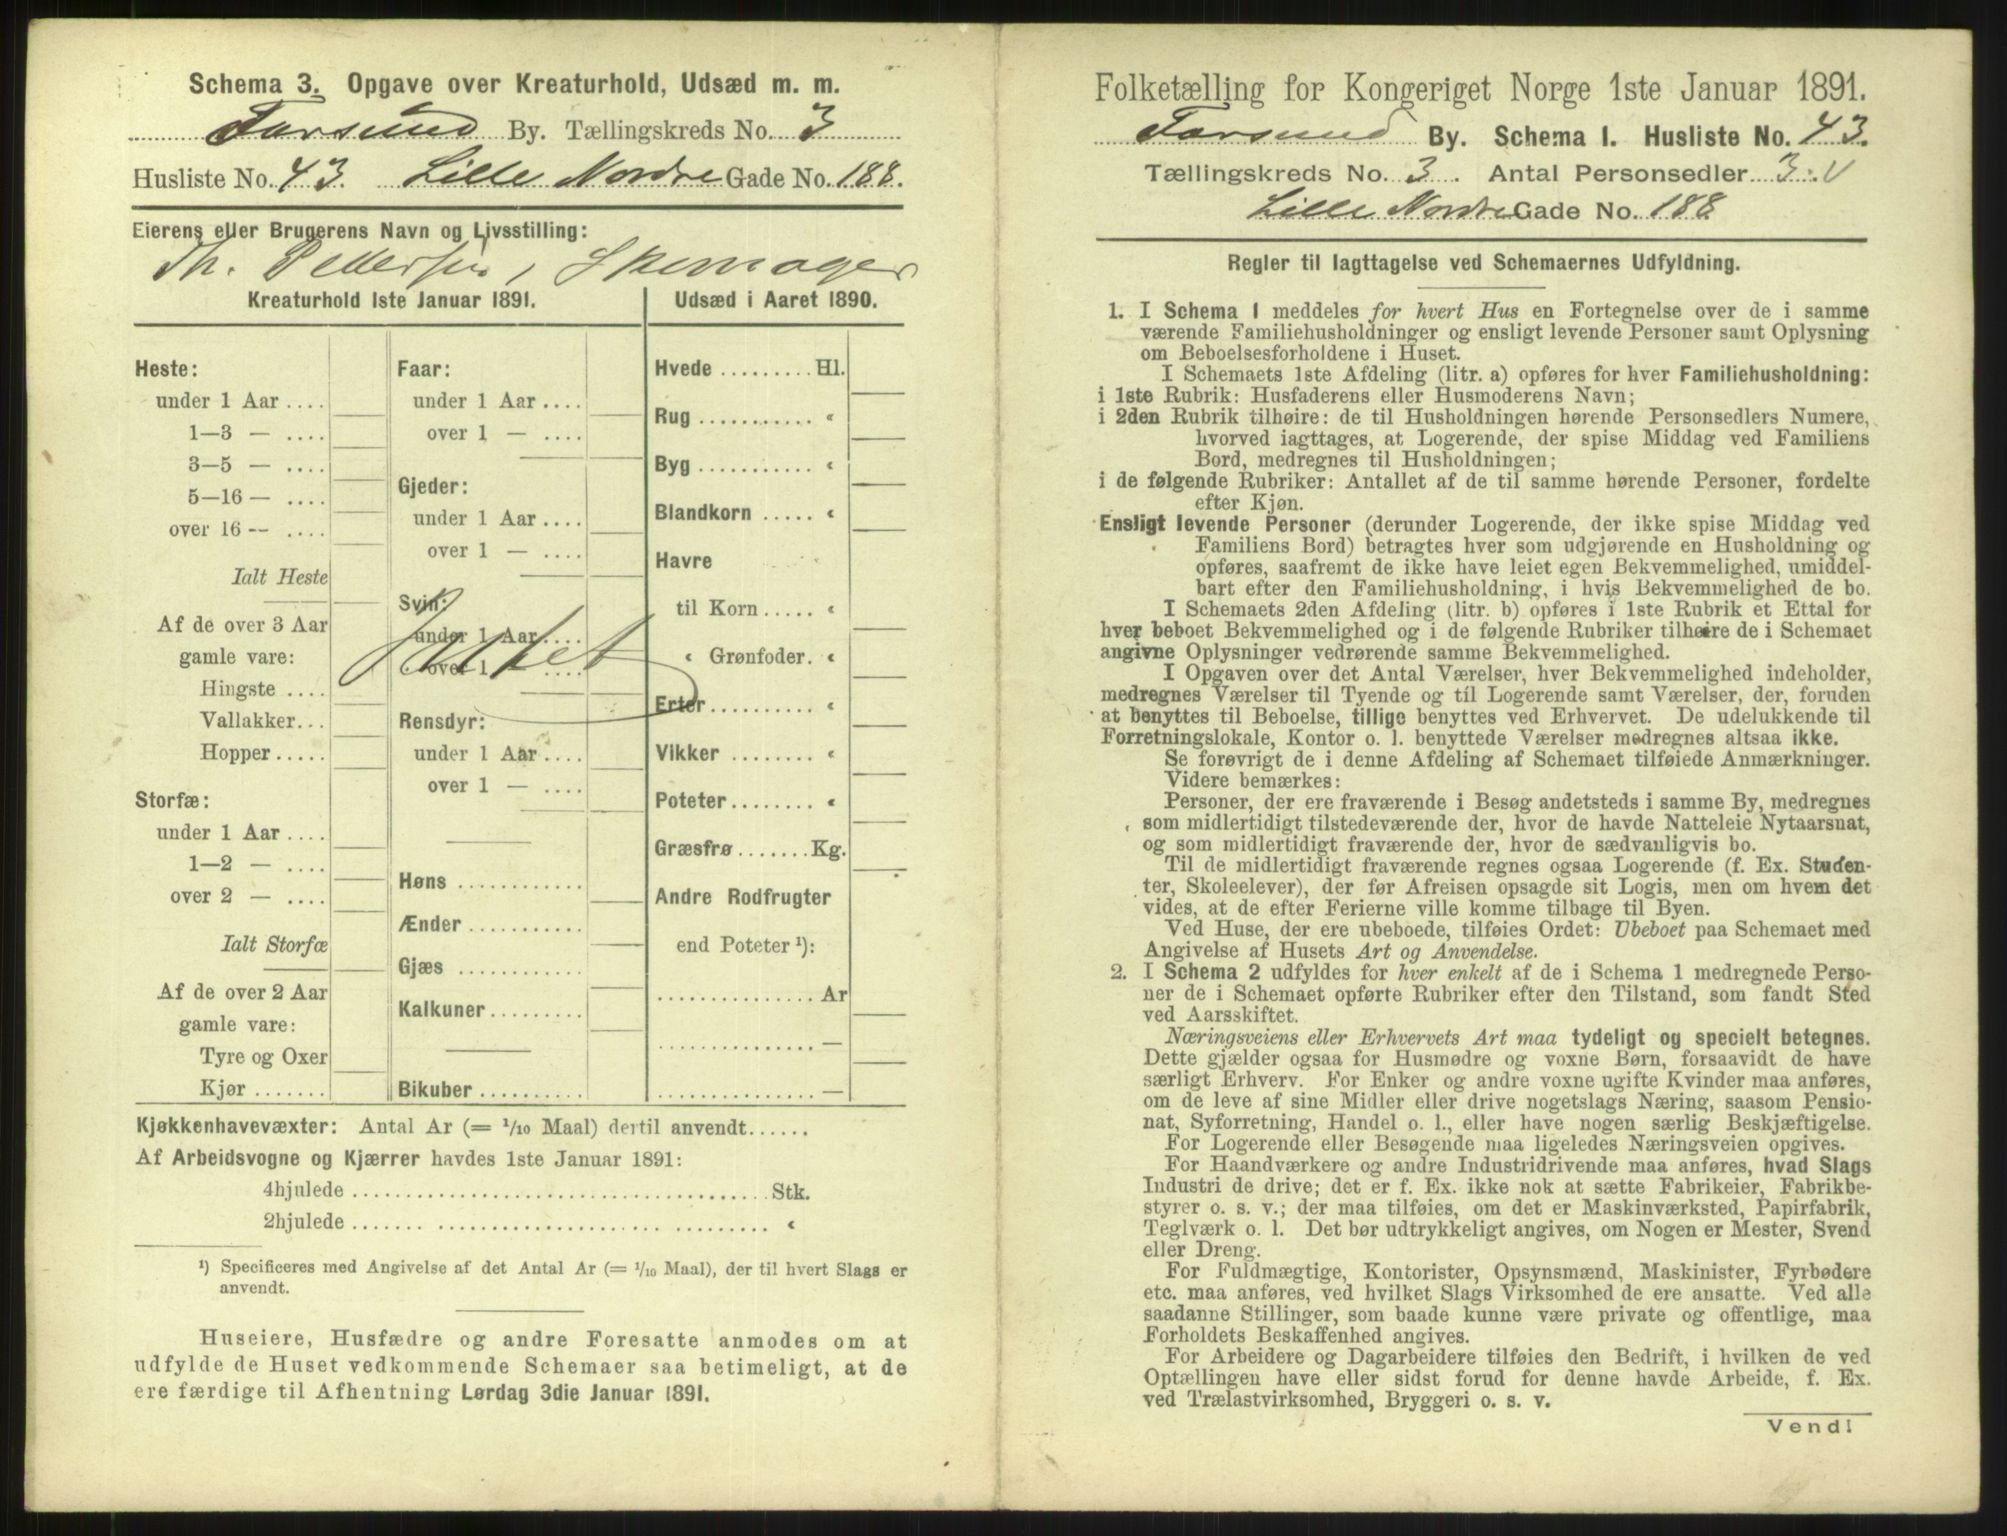 Schema 3. Opgave over Kreaturhold, Udsæd m. m.
Farsund By. Tællingskreds No. 3
Husliste No. 43. Lille Nordre Gade No. 188.
Eierens eller Brugerens Navn og Livsstilling:
Th. Pettersen, Skomager
Kreaturhold 1ste Januar 1891.
Heste:
under 1 Aar ....
1—3 — ....
3—5 — ....
5—16 — ....
over 16 — ....
Ialt Heste
Af de over 3 Aar
gamle vare:
Hingste ....
Vallakker...
Hopper.....
Storfæ:
under 1 Aar ....
1—2 — ....
over 2 — ....
Ialt Storfæ
Af de over 2 Aar
gamle vare:
Tyre og Oxer
Kjør .......
Faar:
under 1 Aar ....
over 1 — ....
Gjeder:
under 1 Aar ....
over 1 — ....
Svin:
under 1 Aar ....
over 1 — ....
Intet
Rensdyr:
under 1 Aar ....
over 1 — ....
Høns ............
Ænder ...........
Gjæs ............
Kalkuner .........
Bikuber ..........
Udsæd i Aaret 1890.
Hvede ......... Hl.
Rug ........... "
Byg ........... "
Blandkorn ..... "
Havre
til Korn ..... "
" Grønfoder. "
Erter.......... "
Vikker ........ "
Poteter........ "
Græsfrø.......Kg.
Andre Rodfrugter
end Poteter ¹):
............... Ar
............... —
............... —
Kjøkkenhavevæxter: Antal Ar (= 1/10 Maal) dertil anvendt......
Af Arbeidsvogne og Kjærrer havdes 1ste Januar 1891:
4hjulede .................................... Stk.
2hjulede .................................... "
¹) Specificeres med Angivelse af det Antal Ar (= 1/10 Maal), der til hvert Slags er
anvendt.
Huseiere, Husfædre og andre Foresatte anmodes om at
udfylde de Huset vedkommende Schemaer saa betimeligt, at de
ere færdige til Afhentning Lørdag 3die Januar 1891.
Folketælling for Kongeriget Norge 1ste Januar 1891.
Farsund By. Schema 1. Husliste No. 43.
Tællingskreds No. 3. Antal Personsedler 3. V
Lille Nordre Gade No. 188
Regler til Iagttagelse ved Schemaernes Udfyldning.
1. I Schema 1 meddeles for hvert Hus en Fortegnelse over de i samme
værende Familiehusholdninger og ensligt levende Personer samt Oplysning
om Beboelsesforholdene i Huset.
I Schemaets 1ste Afdeling (litr. a) opføres for hver Familiehusholdning:
i 1ste Rubrik: Husfaderens eller Husmoderens Navn;
i 2den Rubrik tilhøire: de til Husholdningen hørende Personsedlers Numere,
hvorved iagttages, at Logerende, der spise Middag ved Familiens
Bord, medregnes til Husholdningen;
i de følgende Rubriker: Antallet af de til samme hørende Personer, fordelte
efter Kjøn.
Ensligt levende Personer (derunder Logerende, der ikke spise Middag ved
Familiens Bord) betragtes hver som udgjørende en Husholdning og
opføres, saafremt de ikke have leiet egen Bekvemmelighed, umiddel-
bart efter den Familiehusholdning, i hvis Bekvemmelighed de bo.
I Schemaets 2den Afdeling (litr. b) opføres i 1ste Rubrik et Ettal for
hver beboet Bekvemmelighed og i de følgende Rubriker tilhøire de i Schemaet
angivne Oplysninger vedrørende samme Bekvemmelighed.
I Opgaven over det Antal Værelser, hver Bekvemmelighed indeholder,
medregnes Værelser til Tyende og til Logerende samt Værelser, der, foruden
at benyttes til Beboelse, tillige benyttes ved Erhvervet. De udelukkende til
Forretningslokale, Kontor o. l. benyttede Værelser medregnes altsaa ikke.
Se forøvrigt de i denne Afdeling af Schemaet tilføiede Anmærkninger.
Videre bemærkes:
Personer, der ere fraværende i Besøg andetsteds i samme By, medregnes
som midlertidigt tilstedeværende der, hvor de havde Natteleie Nytaarsnat,
og som midlertidigt fraværende der, hvor de sædvanligvis bo.
Til de midlertidigt fraværende regnes ogsaa Logerende (f. Ex. Studen-
ter, Skoleelever), der før Afreisen opsagde sit Logis, men om hvem det
vides, at de efter Ferierne ville komme tilbage til Byen.
Ved Huse, der ere ubeboede, tilføies Ordet: Ubeboet paa Schemaet med
Angivelse af Husets Art og Anvendelse.
2. I Schema 2 udfyldes for hver enkelt af de i Schema 1 medregnede Perso-
ner de i Schemaet opførte Rubriker efter den Tilstand, som fandt Sted
ved Aarsskiftet.
Næringsveiens eller Erhvervets Art maa tydeligt og specielt betegnes.
Dette gjælder ogsaa for Husmødre og voxne Børn, forsaavidt de have
særligt Erhverv. For Enker og andre voxne ugifte Kvinder maa anføres,
om de leve af sine Midler eller drive nogetslags Næring, saasom Pensio-
nat, Syforretning, Handel o. l., eller have nogen særlig Beskjæftigelse.
For Logerende eller Besøgende maa ligeledes Næringsveien opgives.
For Haandværkere og andre Industridrivende maa anføres, hvad Slags
Industri de drive; det er f. Ex. ikke nok at sætte Fabrikeier, Fabrikbe-
styrer o. s. v.; der maa tilføies, om det er Maskinværksted, Papirfabrik,
Teglværk o. l. Det bør udtrykkeligt angives, om Nogen er Mester, Svend
eller Dreng.
For Fuldmægtige, Kontorister, Opsynsmænd, Maskinister, Fyrbødere
etc. maa anføres, ved hvilket Slags Virksomhed de ere ansatte. Ved alle
saadanne Stillinger, som baade kunne være private og offentlige, maa
Forholdets Beskaffenhed angives.
For Arbeidere og Dagarbeidere tilføies den Bedrift, i hvilken de ved
Optællingen have eller sidst forud for denne havde Arbeide, f. Ex.
ved Trælastvirksomhed, Bryggeri o. s. v.
Vend!